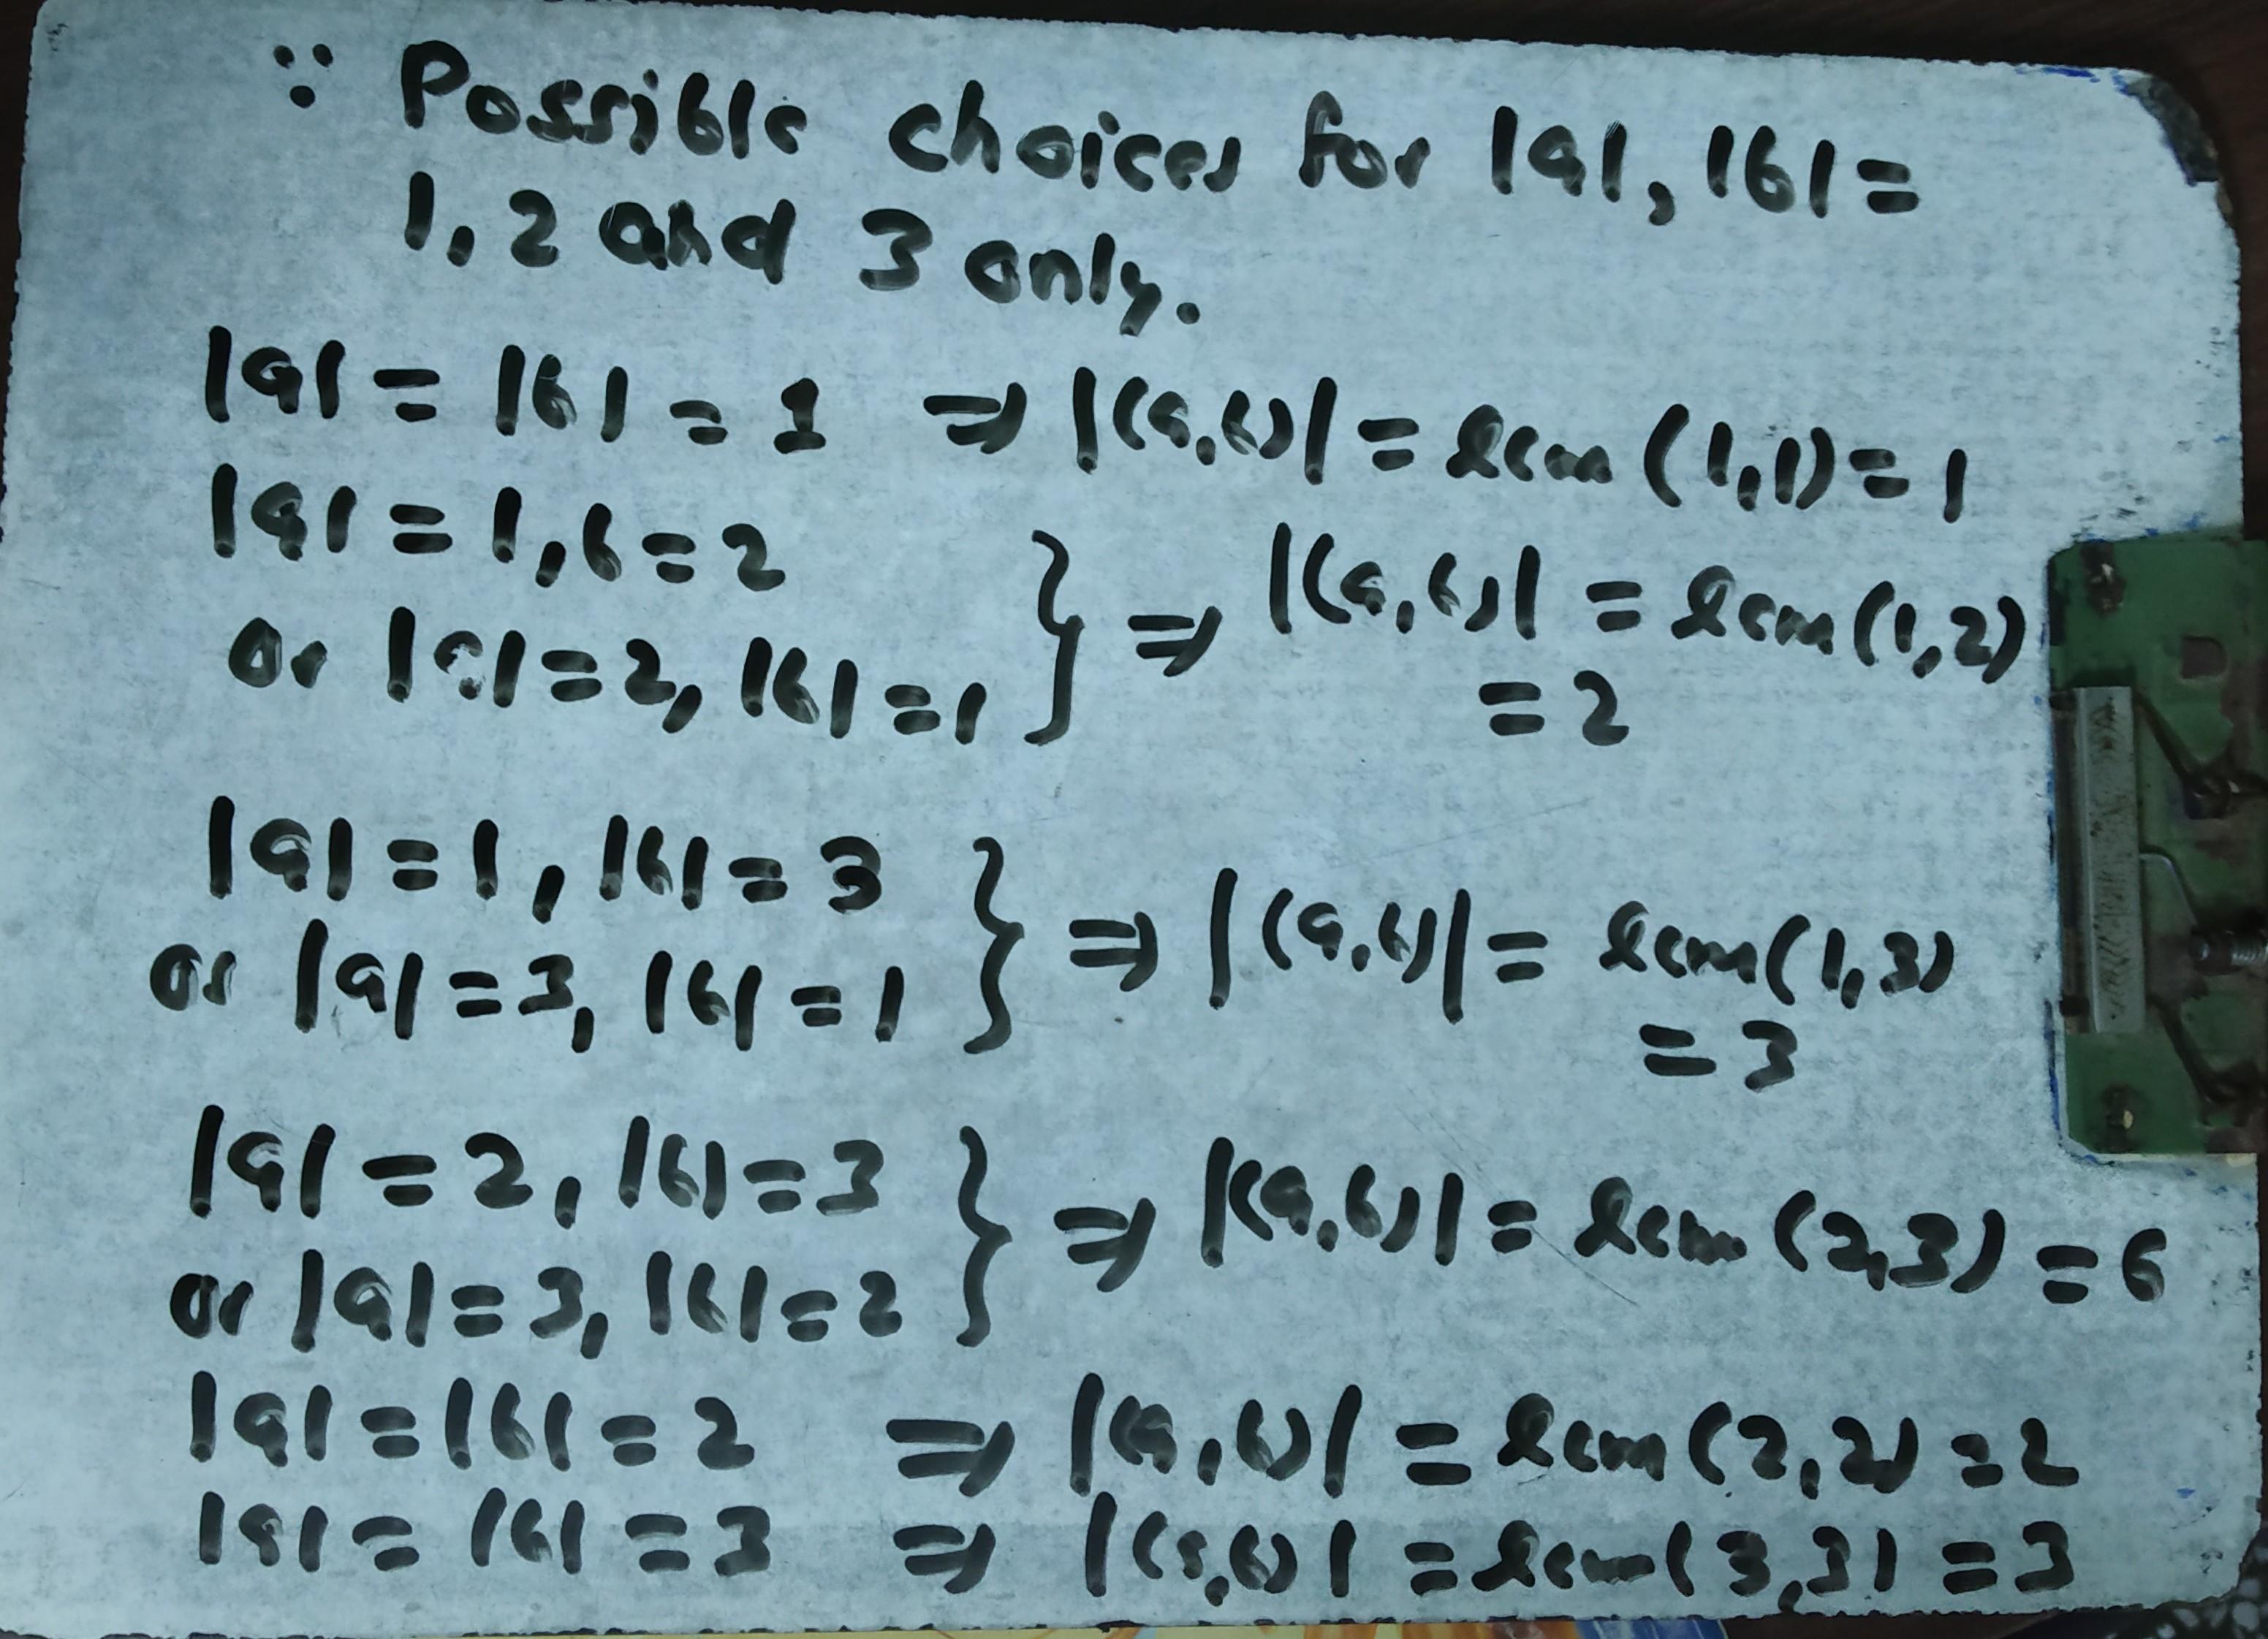 ∵ Possible choices for |a|, |b| =
1, 2 and 3 only.
|a| = |b| = 1 ⇒ |(a,b)| = lcm (1,1) = 1
|a| = 1, b = 2
or |a| = 2, |b| = 1 } ⇒ |(a,b)| = lcm (1,2)
= 2
|a| = 1, |b| = 3
or |a| = 3, |b| = 1 } ⇒ |(a,b)| = lcm (1,3)
= 3
|a| = 2, |b| = 3
or |a| = 3, |b| = 2 } ⇒ |(a,b)| = lcm (2,3) = 6
|a| = |b| = 2 ⇒ |(a,b)| = lcm (2,2) = 2
|a| = |b| = 3 ⇒ |(a,b)| = lcm (3,3) = 3